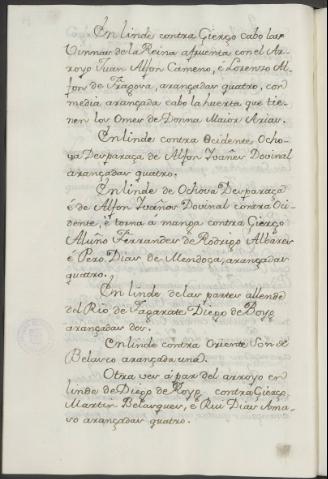 En linde contra Cierço cabo las
Vinnas de la Reina afruenta con el Ar-
royo Juan Alfon Cameno, e Lorenzo Al-
fon de Fragova, arançadas quatro, con
media arançada cabo la huerta que tie-
nen los Omes de Donna Maior Arias.
En linde contra Ocidente Ocho-
va Desparaça de Alfon Ivañes Dovinal
arançadas quatro.
En linde de Ochova Desparaça
é de Alfon Ivañes Dovinal contra Oci-
dente, é torna á manga contra Cierço
Nuño Ferrandes de Rodrigo Albares
é Pero Dias de Mendoça, arançadas
quatro.
En linde de las partes allende
del Rio de Tagarate Diego de Royo
arançadas dos.
En linde contra Oriente Son de
Belasco arançada una.
Otra ves á par del arroyo en
linde de Diego de Royo contra Cierço,
Martin Belasques, é Rui Dias Ama-
so arançadas quatro.